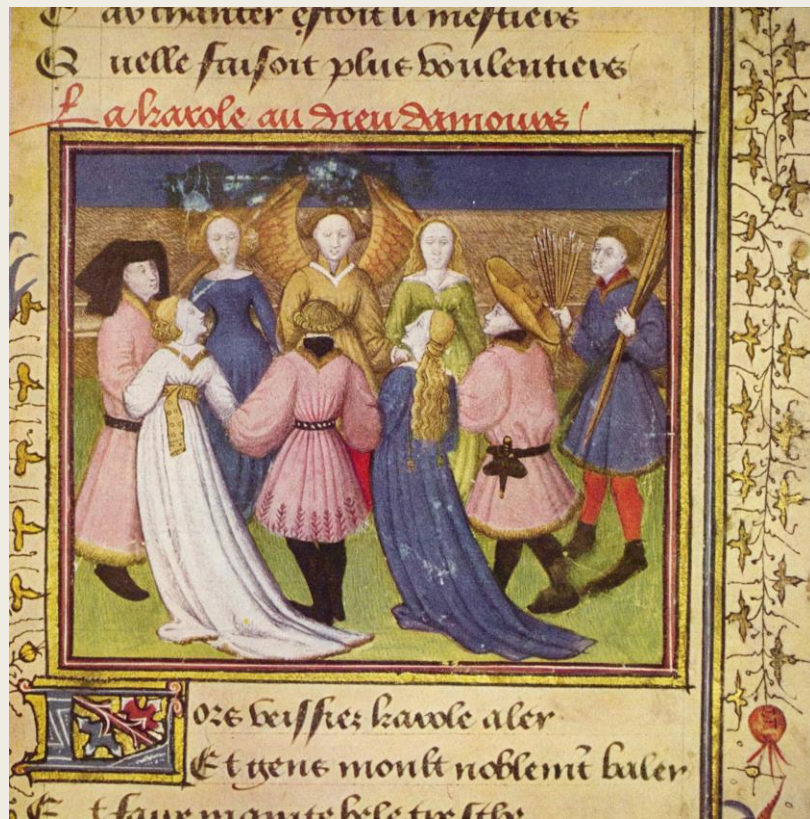 au chanter estoit li mestiers
Quelle faisoit plus voulentiers
La karole au dieu damours
Lors veissiez karole aler
Et gens moult noblem̃t baler
Et faire mainte bele tresche